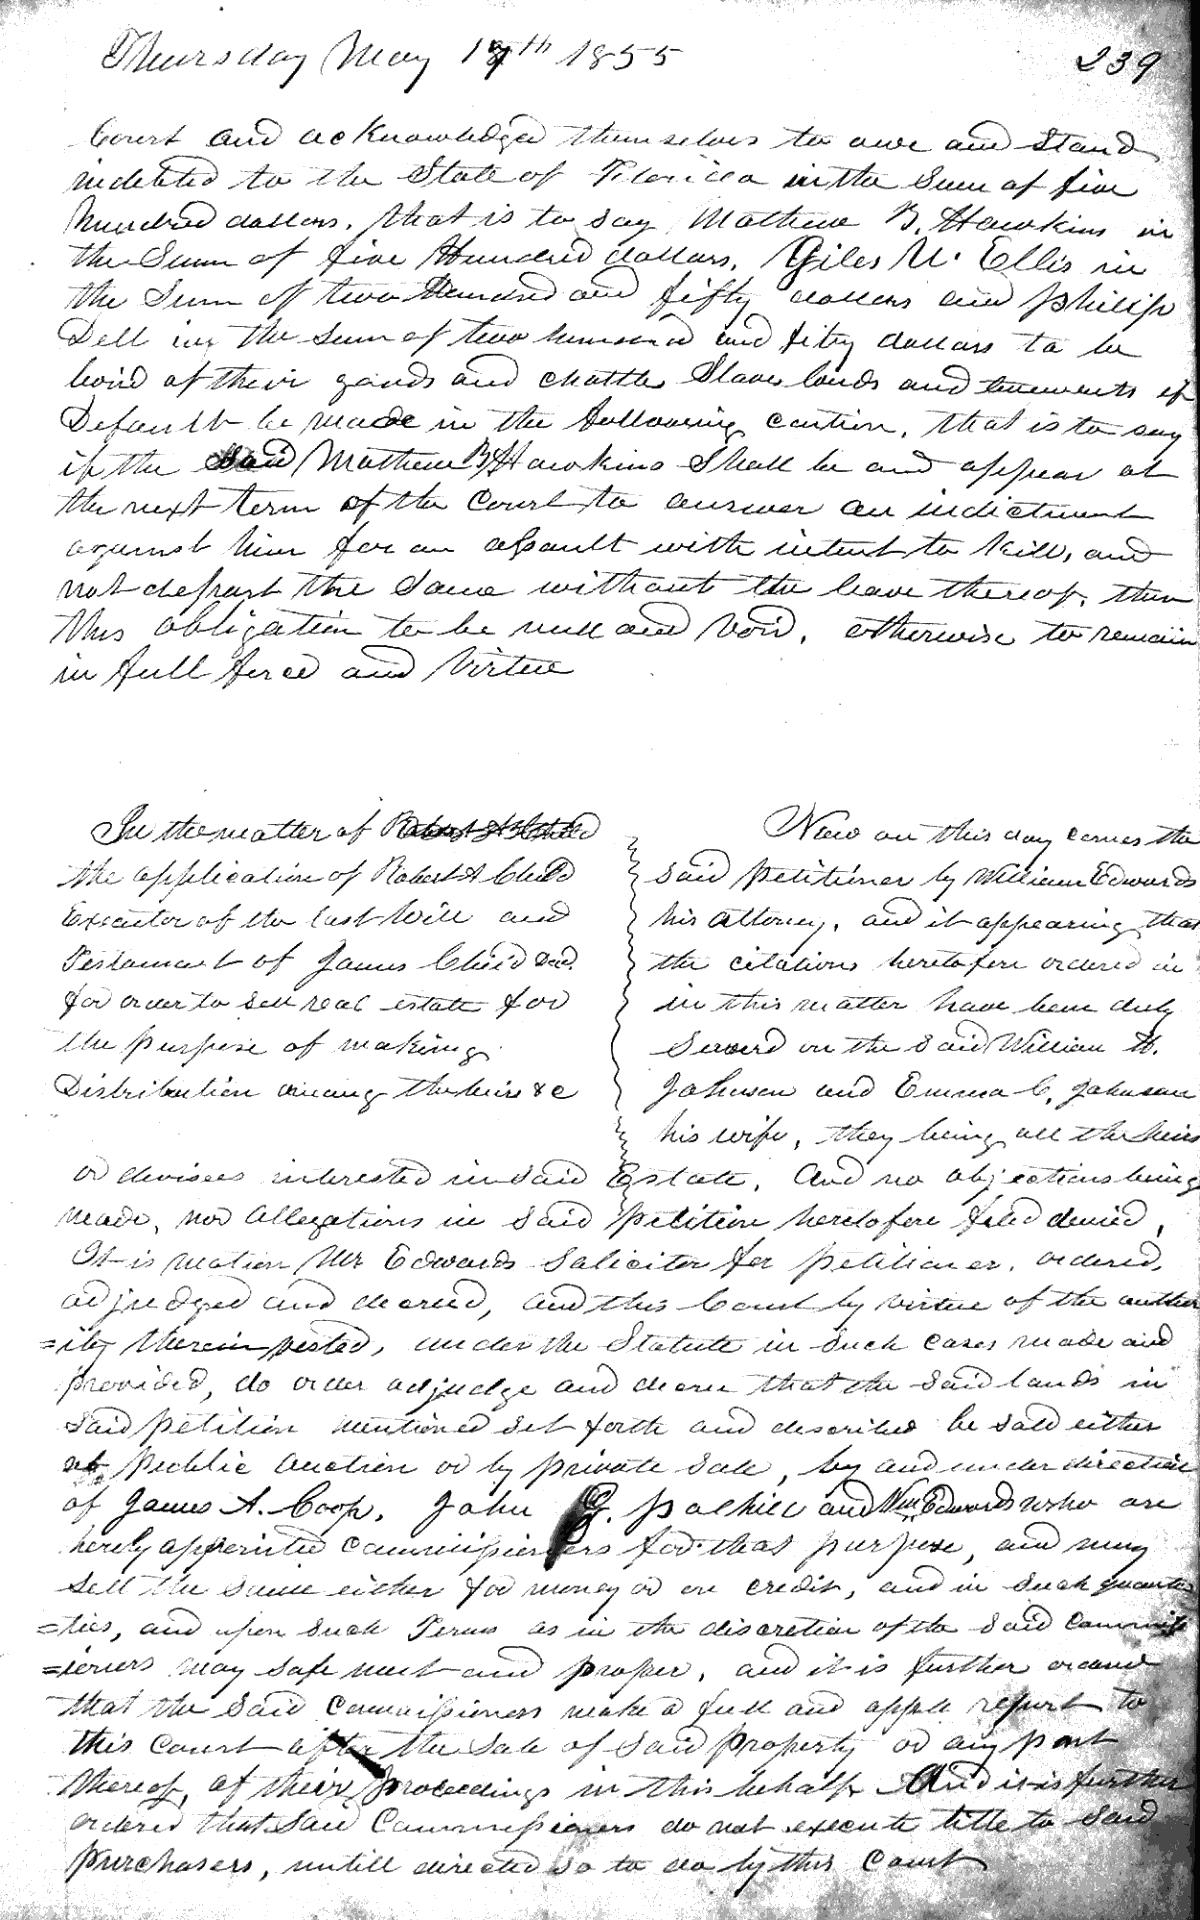 Thursday May 17th 1855
239
Court and acknowledged themselves to owe and Stand
indebted to the State of Florida in the Sum of five
hundred dollars, that is to say Mathew B. Hawkins in
the Sum of five Hundred dollars, Giles U. Ellis in
the Sum of two Hundred and fifty dollars and philip
Dell in the sum of two hundred and fifty dollars to be
levied of their goods and chattle Slave lands and tenements if
Default be made in the following caution, that is to say
if the Said Mathew B Hawkins Shall be and appear at
the next term of the Court to answer an indictment
against him for an assault with intent to kill, and
not depart the Same without the leave thereof, then
this obligation to be null and Void, otherwise to remain
in full force and virtue
In the matter of
the application of Robert A Child
Executor of the last Will and
Testament of James Child Decd.
for order to sell real estate for
the purpose of making
Distribution among the heirs & c
Now on this day comes the
said petitioner by William Edwards
his attorney, and it appearing that
the citations heretofore ordered in
in this matter have been duly
Served on the said William H.
Johnson and Emma C. Johnson
his wife, they being all the heirs
or devisees interested in said Estate, And no objections being
made, nor allegations in said petition heretofore filed denied,
It is motion Mr Edwards Solicitor for petitioner, ordered,
adjudged and decreed, and this Court by virtue of the author
=ity therein vested, under the Statute in such cases made and
provided, do order adjudge and decree that the said lands in
said petition mentioned set forth and described be sold either
at Public Auction or by private Sale, by and under direction
of James A. Coop, John G. palhill and Wm Edwards who are
hereby appointed commissioners for that purpose, and may
sell the same either for money or on credit, and in such quanti
=ties, and upon such Terms as in the discretion of the said Commiss
=ioners may safe meet and proper, and it is further ordered
that the said Commissioners make a full and apple report to
this Court after the Sale of said property or any part
thereof, of their proceedings in this behalf And it is further
ordered that said Commissioners do not execute title to said
purchasers, untill directed so to do by this Court